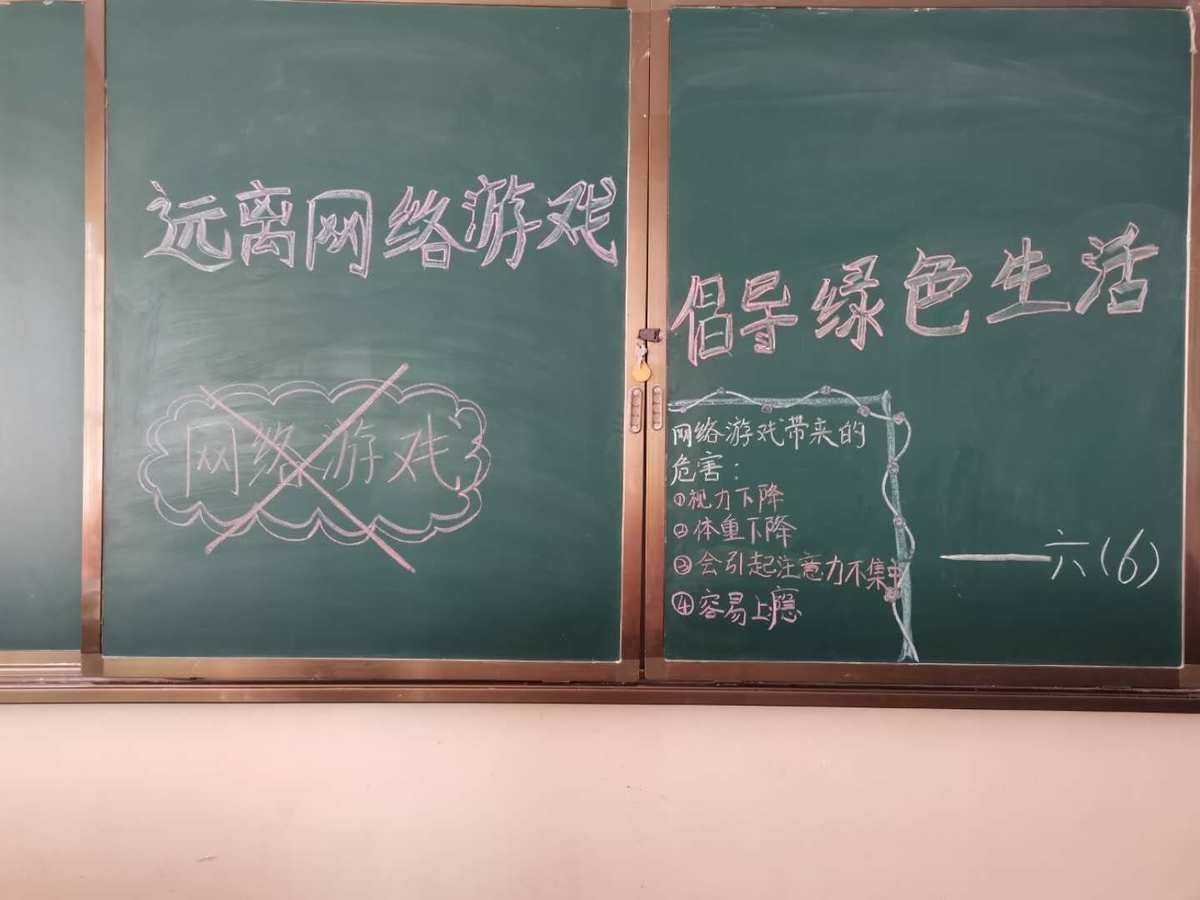 远离网络游戏
网络游戏
倡导绿色生活
网络游戏带来的
危害：
①视力下降
②体重下降
③会引起注意力不集中
④容易上瘾
——六(6)